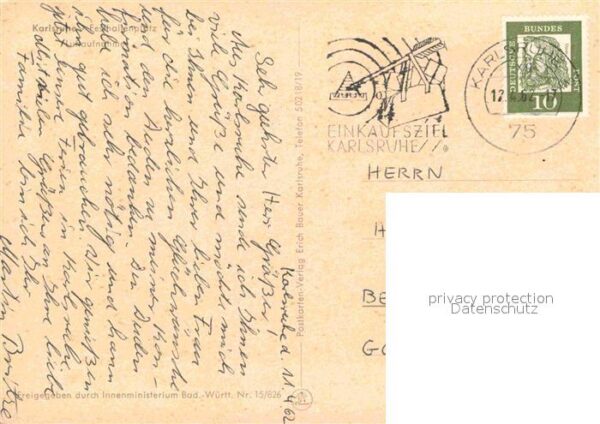 Karlsruhe Festhallenplatz
Flugaufnahme
Karlsruhe d. 11.4.62
Sehr geehrter Herr Größer!
Aus Karlsruhe sende ich Ihnen
viele Grüße und möchte mich
bei Ihnen und Ihrer lieben Frau
für die herzlichen Glückwünsche
und den Duden zu meiner Kon-
firmation bedanken. Den Duden
habe ich sehr nötig und kann
ihn gut gebrauchen. Wir genießen
jetzt unsere Ferien in Karlsruhe.
Mit vielen Grüßen an Ihre liebe
Familie bin ich Ihr
Martin
Freigegeben durch Innenministerium Bad.-Württ. Nr. 15/626
Postkarten-Verlag Erich Bauer Karlsruhe, Telefon 50218/19
EINKAUFSZIEL
KARLSRUHE
KARLSRUHE
75
DEUTSCHE
BUNDES
POST
10
HERRN
H
BE
privacy protection
Datenschutz